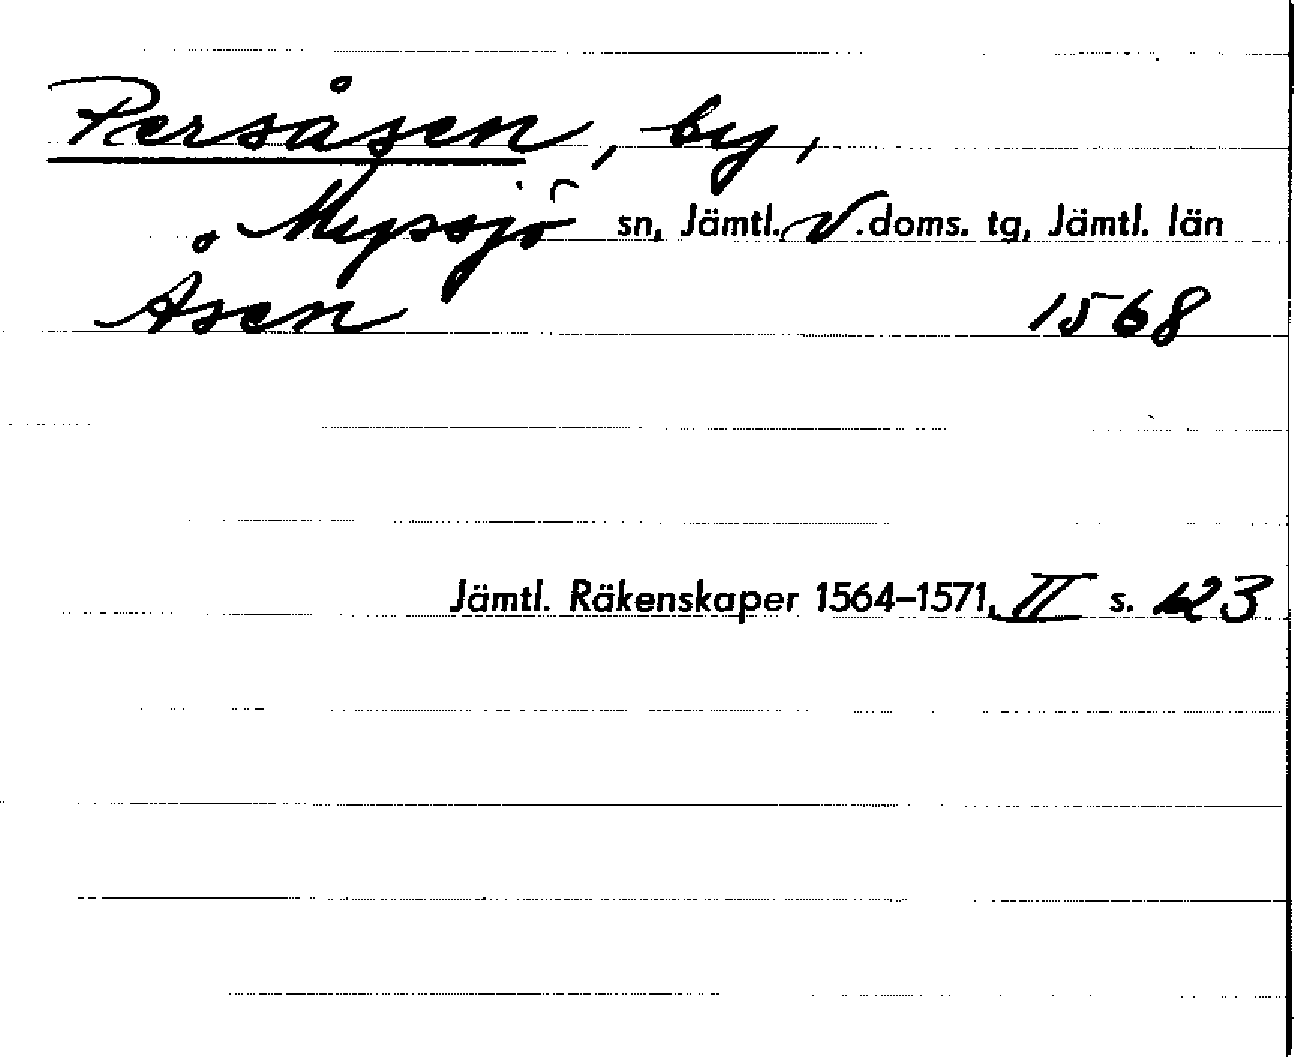 Persåsen, by,
Myssjö sn, Jämtl. V. doms. tg, Jämtl. län
Åsen 1568
Jämtl. Räkenskaper 1564–1571, II s.